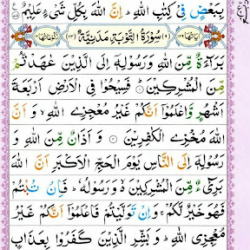 بِبَعْضٍ فِىْ كِتٰبِ اللّٰهِ ؕ اِنَّ اللّٰهَ بِكُلِّ شَىْءٍ عَلِيْمٌ
سُوْرَةُ التَّوْبَةِ مَدَنِيَّةٌ
بَرَآءَةٌ مِّنَ اللّٰهِ وَرَسُوْلِهٖۤ اِلَى الَّذِيْنَ عٰهَدْتُّمْ
مِّنَ الْمُشْرِكِيْنَ ؕ فَسِيْحُوْا فِى الْاَرْضِ اَرْبَعَةَ
اَشْهُرٍ وَّاعْلَمُوْۤا اَنَّكُمْ غَيْرُ مُعْجِزِى اللّٰهِ ۙ وَاَنَّ
اللّٰهَ مُخْزِى الْكٰفِرِيْنَ وَاَذَانٌ مِّنَ اللّٰهِ وَ
رَسُوْلِهٖۤ اِلَى النَّاسِ يَوْمَ الْحَجِّ الْاَكْبَرِ اَنَّ اللّٰهَ
بَرِىْٓءٌ مِّنَ الْمُشْرِكِيْنَ ۙ وَرَسُوْلُهٗ ؕ فَاِنْ تُبْتُمْ
فَهُوَ خَيْرٌ لَّكُمْ ۚ وَاِنْ تَوَلَّيْتُمْ فَاعْلَمُوْۤا اَنَّكُمْ غَيْرُ
مُعْجِزِى اللّٰهِ ؕ وَبَشِّرِ الَّذِيْنَ كَفَرُوْا بِعَذَابٍ